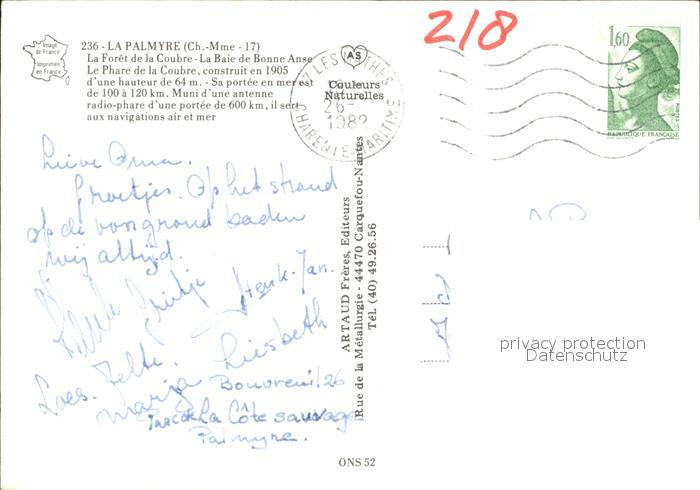 Image
de France
Imprimée
en France
236 - LA PALMYRE (Ch.-Mme - 17)
La Forêt de la Coubre - La Baie de Bonne Anse
Le Phare de la Coubre, construit en 1905
d'une hauteur de 64 m. - Sa portée en mer est
de 100 à 120 km. Muni d'une antenne
radio-phare d'une portée de 600 km, il sert
aux navigations air et mer
AS
Couleurs
Naturelles
17 LES MATHES
26-
1982
CHARENTE MARITIME
218
1,60
POSTES
REPUBLIQUE FRANÇAISE
Lieve Oma.
Groetjes. Op het strand
op de voorgrond baden
wij altijd.
Henk-Jan.
Liesbeth
Loes. Jelte.
Marja
Bouvreuil 26
Parc de La Côte sauvage
Palmyre.
ARTAUD Frères, Editeurs
Rue de la Métallurgie - 44470 Carquefou-Nantes
Tél. (40) 49.26.56
ONS 52
privacy protection
Datenschutz